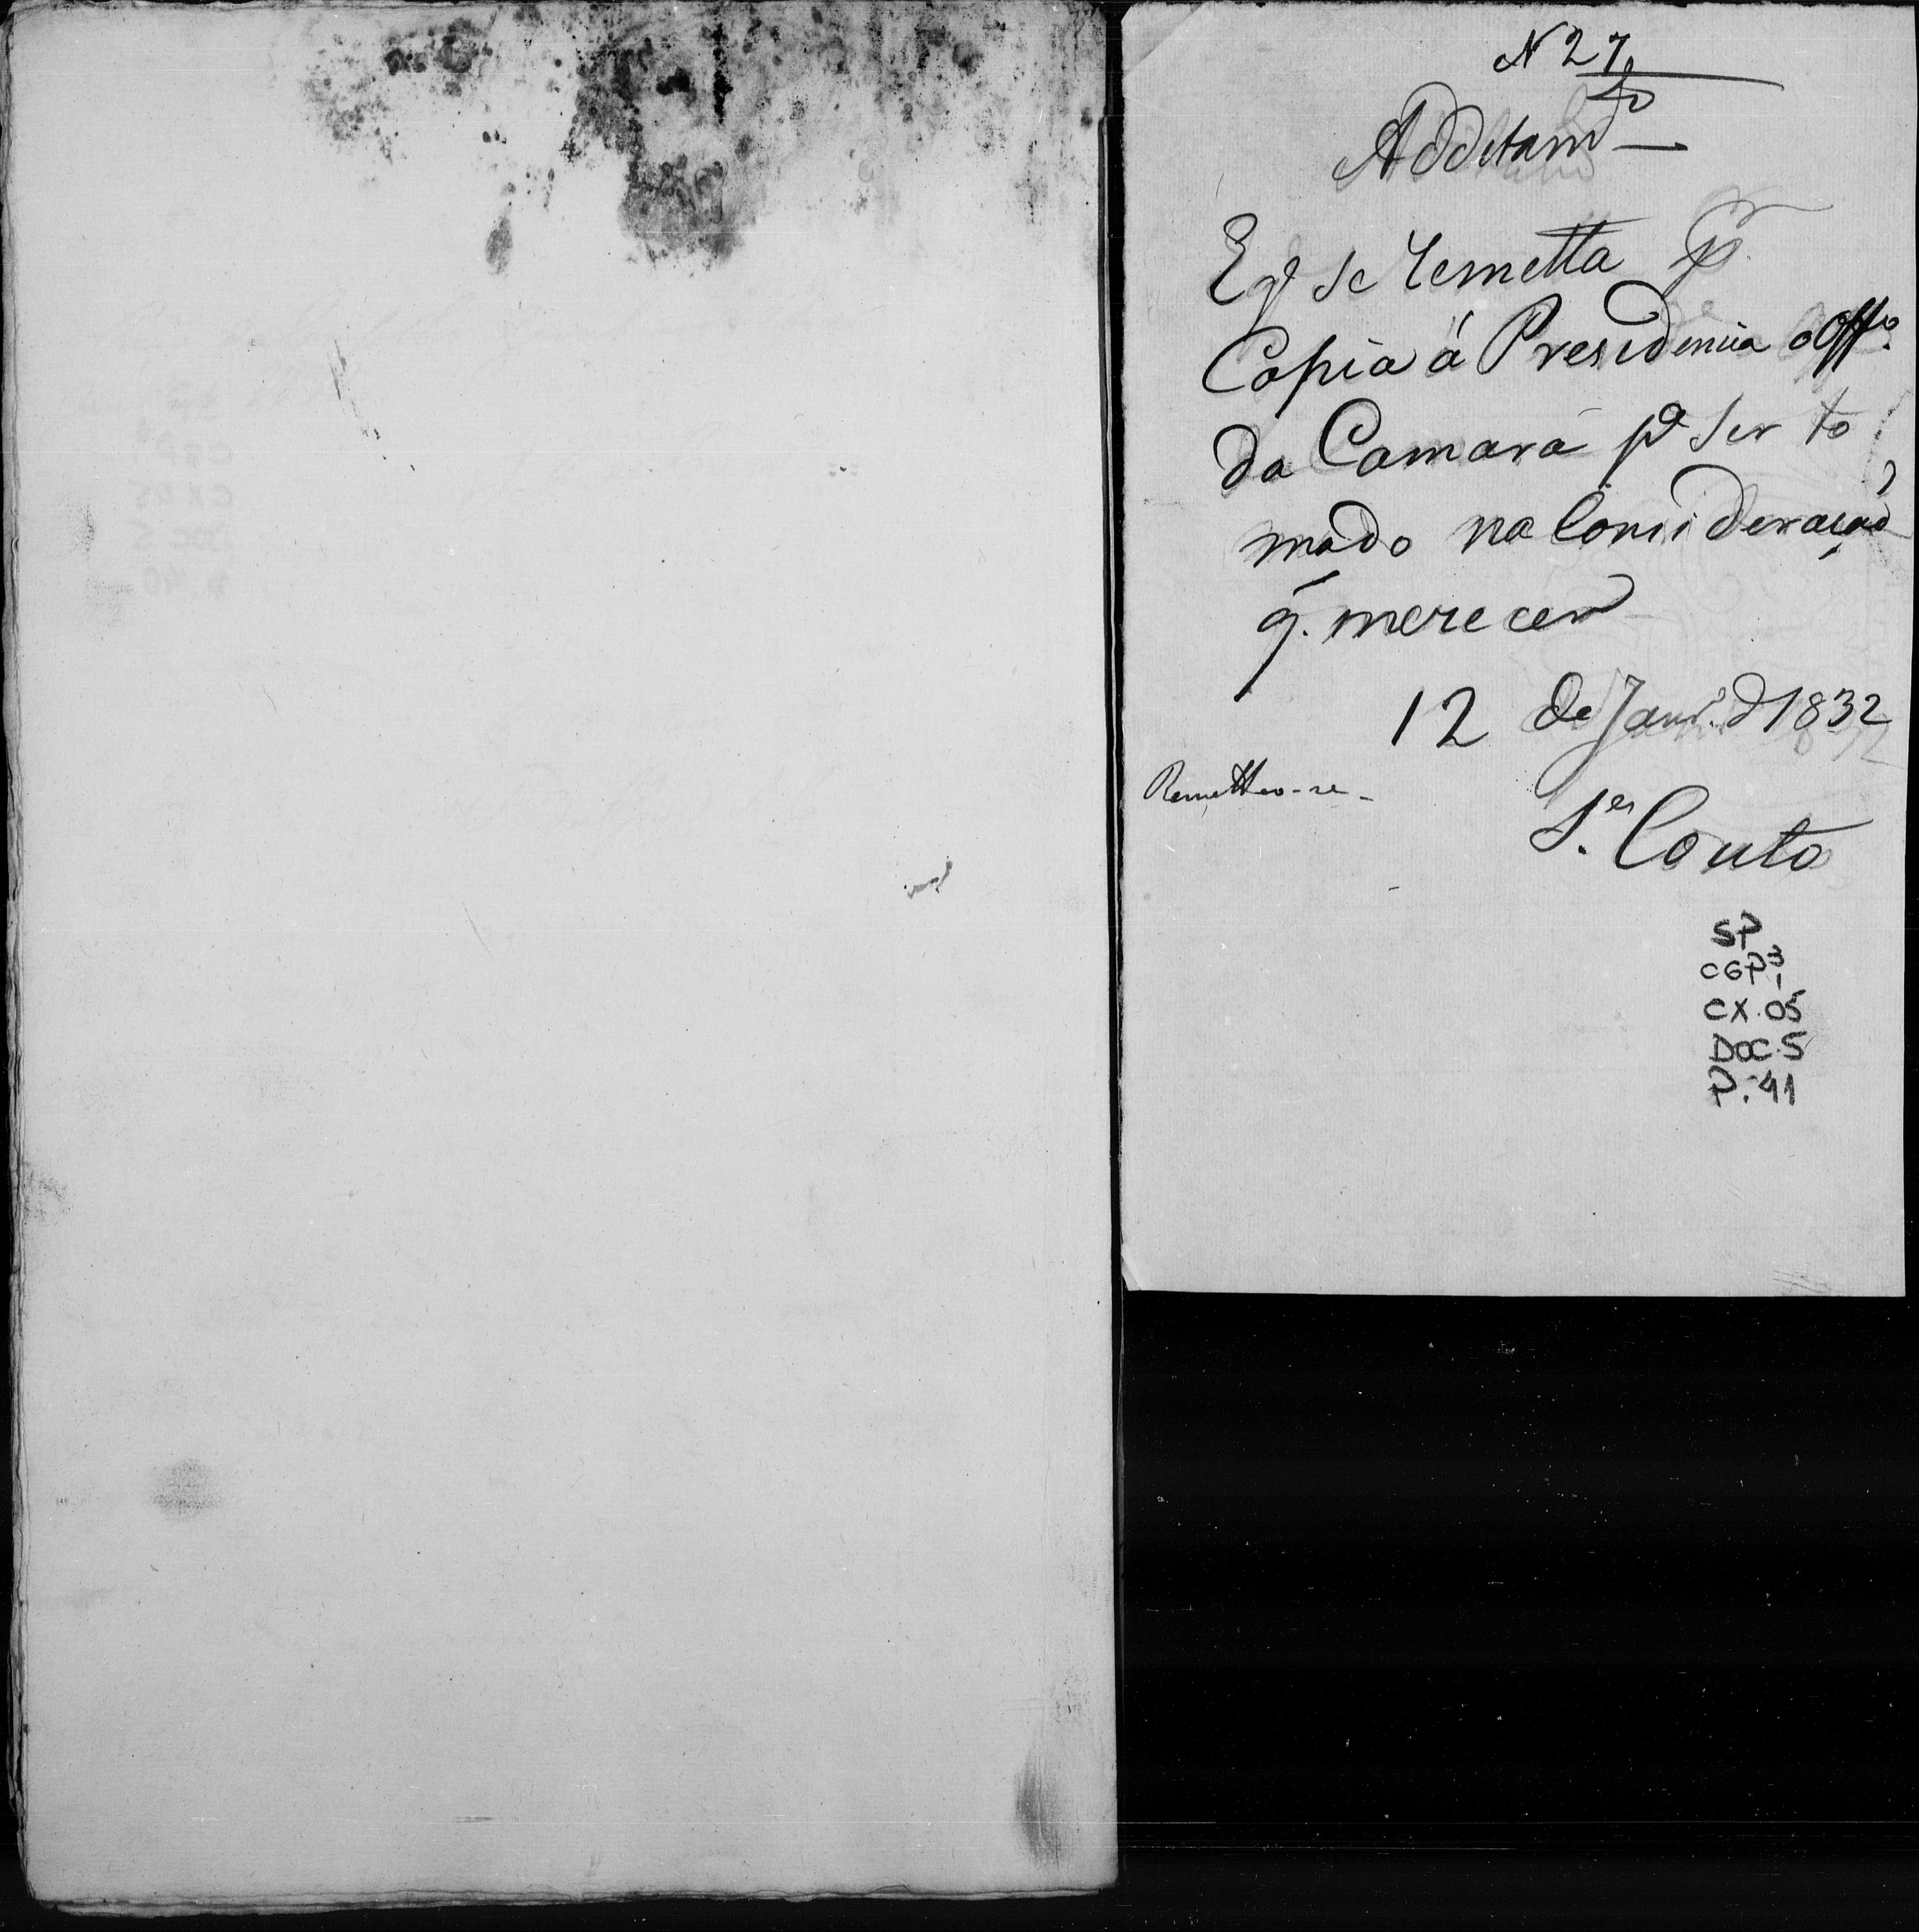 N 27
Additam.to
E q̃ se remetta p.r
Copia á Presidencia o Off.o
da Camara p.a ser to
mado na Consideração
q̃. merecer
12 de Janr.o d 1832
Remetteo-se-
S.es Couto
SP
CGP3,
CX.05
DOC.5
P.41